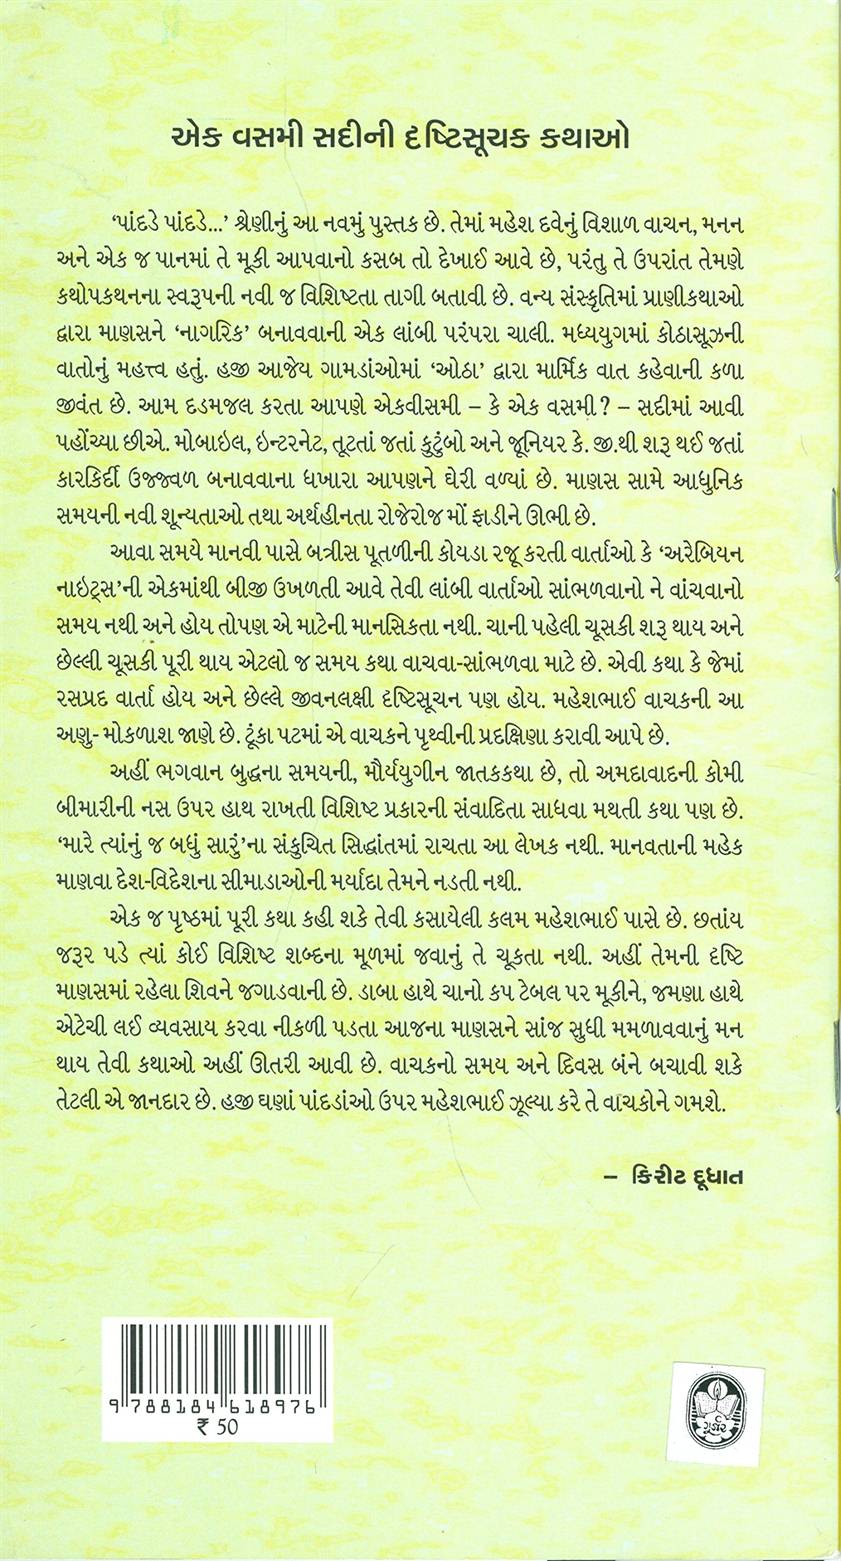 એક વસમી સદીની દૃષ્ટિસૂચક કથાઓ
‘પાંદડે પાંદડે...’ શ્રેણીનું આ નવમું પુસ્તક છે. તેમાં મહેશ દવેનું વિશાળ વાચન, મનન
અને એક જ પાનમાં તે મૂકી આપવાનો કસબ તો દેખાઈ આવે છે, પરંતુ તે ઉપરાંત તેમણે
કથોપકથનના સ્વરૂપની નવી જ વિશિષ્ટતા તાગી બતાવી છે. વન્ય સંસ્કૃતિમાં પ્રાણીકથાઓ
દ્વારા માણસને ‘નાગરિક’ બનાવવાની એક લાંબી પરંપરા ચાલી. મધ્યયુગમાં કોઠાસૂઝની
વાતોનું મહત્ત્વ હતું. હજી આજેય ગામડાંઓમાં ‘ઓઠા’ દ્વારા માર્મિક વાત કહેવાની કળા
જીવંત છે. આમ દડમજલ કરતા આપણે એકવીસમી – કે એક વસમી ? – સદીમાં આવી
પહોંચ્યા છીએ. મોબાઇલ, ઇન્ટરનેટ, તૂટતાં જતાં કુટુંબો અને જૂનિયર કે. જી.થી શરૂ થઈ જતાં
કારકિર્દી ઉજ્જ્વળ બનાવવાના ધખારા આપણને ઘેરી વળ્યાં છે. માણસ સામે આધુનિક
સમયની નવી શૂન્યતાઓ તથા અર્થહીનતા રોજેરોજ મોં ફાડીને ઊભી છે.
આવા સમયે માનવી પાસે બત્રીસ પૂતળીની કોયડા રજૂ કરતી વાર્તાઓ કે ‘અરેબિયન
નાઇટ્સ’ની એકમાંથી બીજી ઉખળતી આવે તેવી લાંબી વાર્તાઓ સાંભળવાનો ને વાંચવાનો
સમય નથી અને હોય તોપણ એ માટેની માનસિકતા નથી. ચાની પહેલી ચૂસકી શરૂ થાય અને
છેલ્લી ચૂસકી પૂરી થાય એટલો જ સમય કથા વાચવા-સાંભળવા માટે છે. એવી કથા કે જેમાં
રસપ્રદ વાર્તા હોય અને છેલ્લે જીવનલક્ષી દૃષ્ટિસૂચન પણ હોય. મહેશભાઈ વાચકની આ
અણુ- મોકળાશ જાણે છે. ટૂંકા પટમાં એ વાચકને પૃથ્વીની પ્રદક્ષિણા કરાવી આપે છે.
અહીં ભગવાન બુદ્ધના સમયની, મૌર્યયુગીન જાતકકથા છે, તો અમદાવાદની કોમી
બીમારીની નસ ઉપર હાથ રાખતી વિશિષ્ટ પ્રકારની સંવાદિતા સાધવા મથતી કથા પણ છે.
‘મારે ત્યાંનું જ બધું સારું’ના સંકુચિત સિદ્ધાંતમાં રાચતા આ લેખક નથી. માનવતાની મહેક
માણવા દેશ-વિદેશના સીમાડાઓની મર્યાદા તેમને નડતી નથી.
એક જ પૃષ્ઠમાં પૂરી કથા કહી શકે તેવી કસાયેલી કલમ મહેશભાઈ પાસે છે. છતાંય
જરૂર પડે ત્યાં કોઈ વિશિષ્ટ શબ્દના મૂળમાં જવાનું તે ચૂકતા નથી. અહીં તેમની દૃષ્ટિ
માણસમાં રહેલા શિવને જગાડવાની છે. ડાબા હાથે ચાનો કપ ટેબલ પર મૂકીને, જમણા હાથે
એટેચી લઈ વ્યવસાય કરવા નીકળી પડતા આજના માણસને સાંજ સુધી મમળાવવાનું મન
થાય તેવી કથાઓ અહીં ઊતરી આવી છે. વાચકનો સમય અને દિવસ બંને બચાવી શકે
તેટલી એ જાનદાર છે. હજી ઘણાં પાંદડાંઓ ઉપર મહેશભાઈ ઝૂલ્યા કરે તે વાચકોને ગમશે.
– કિરીટ દૂધાત
9 788184 618976
₹ 50
ગૂર્જર